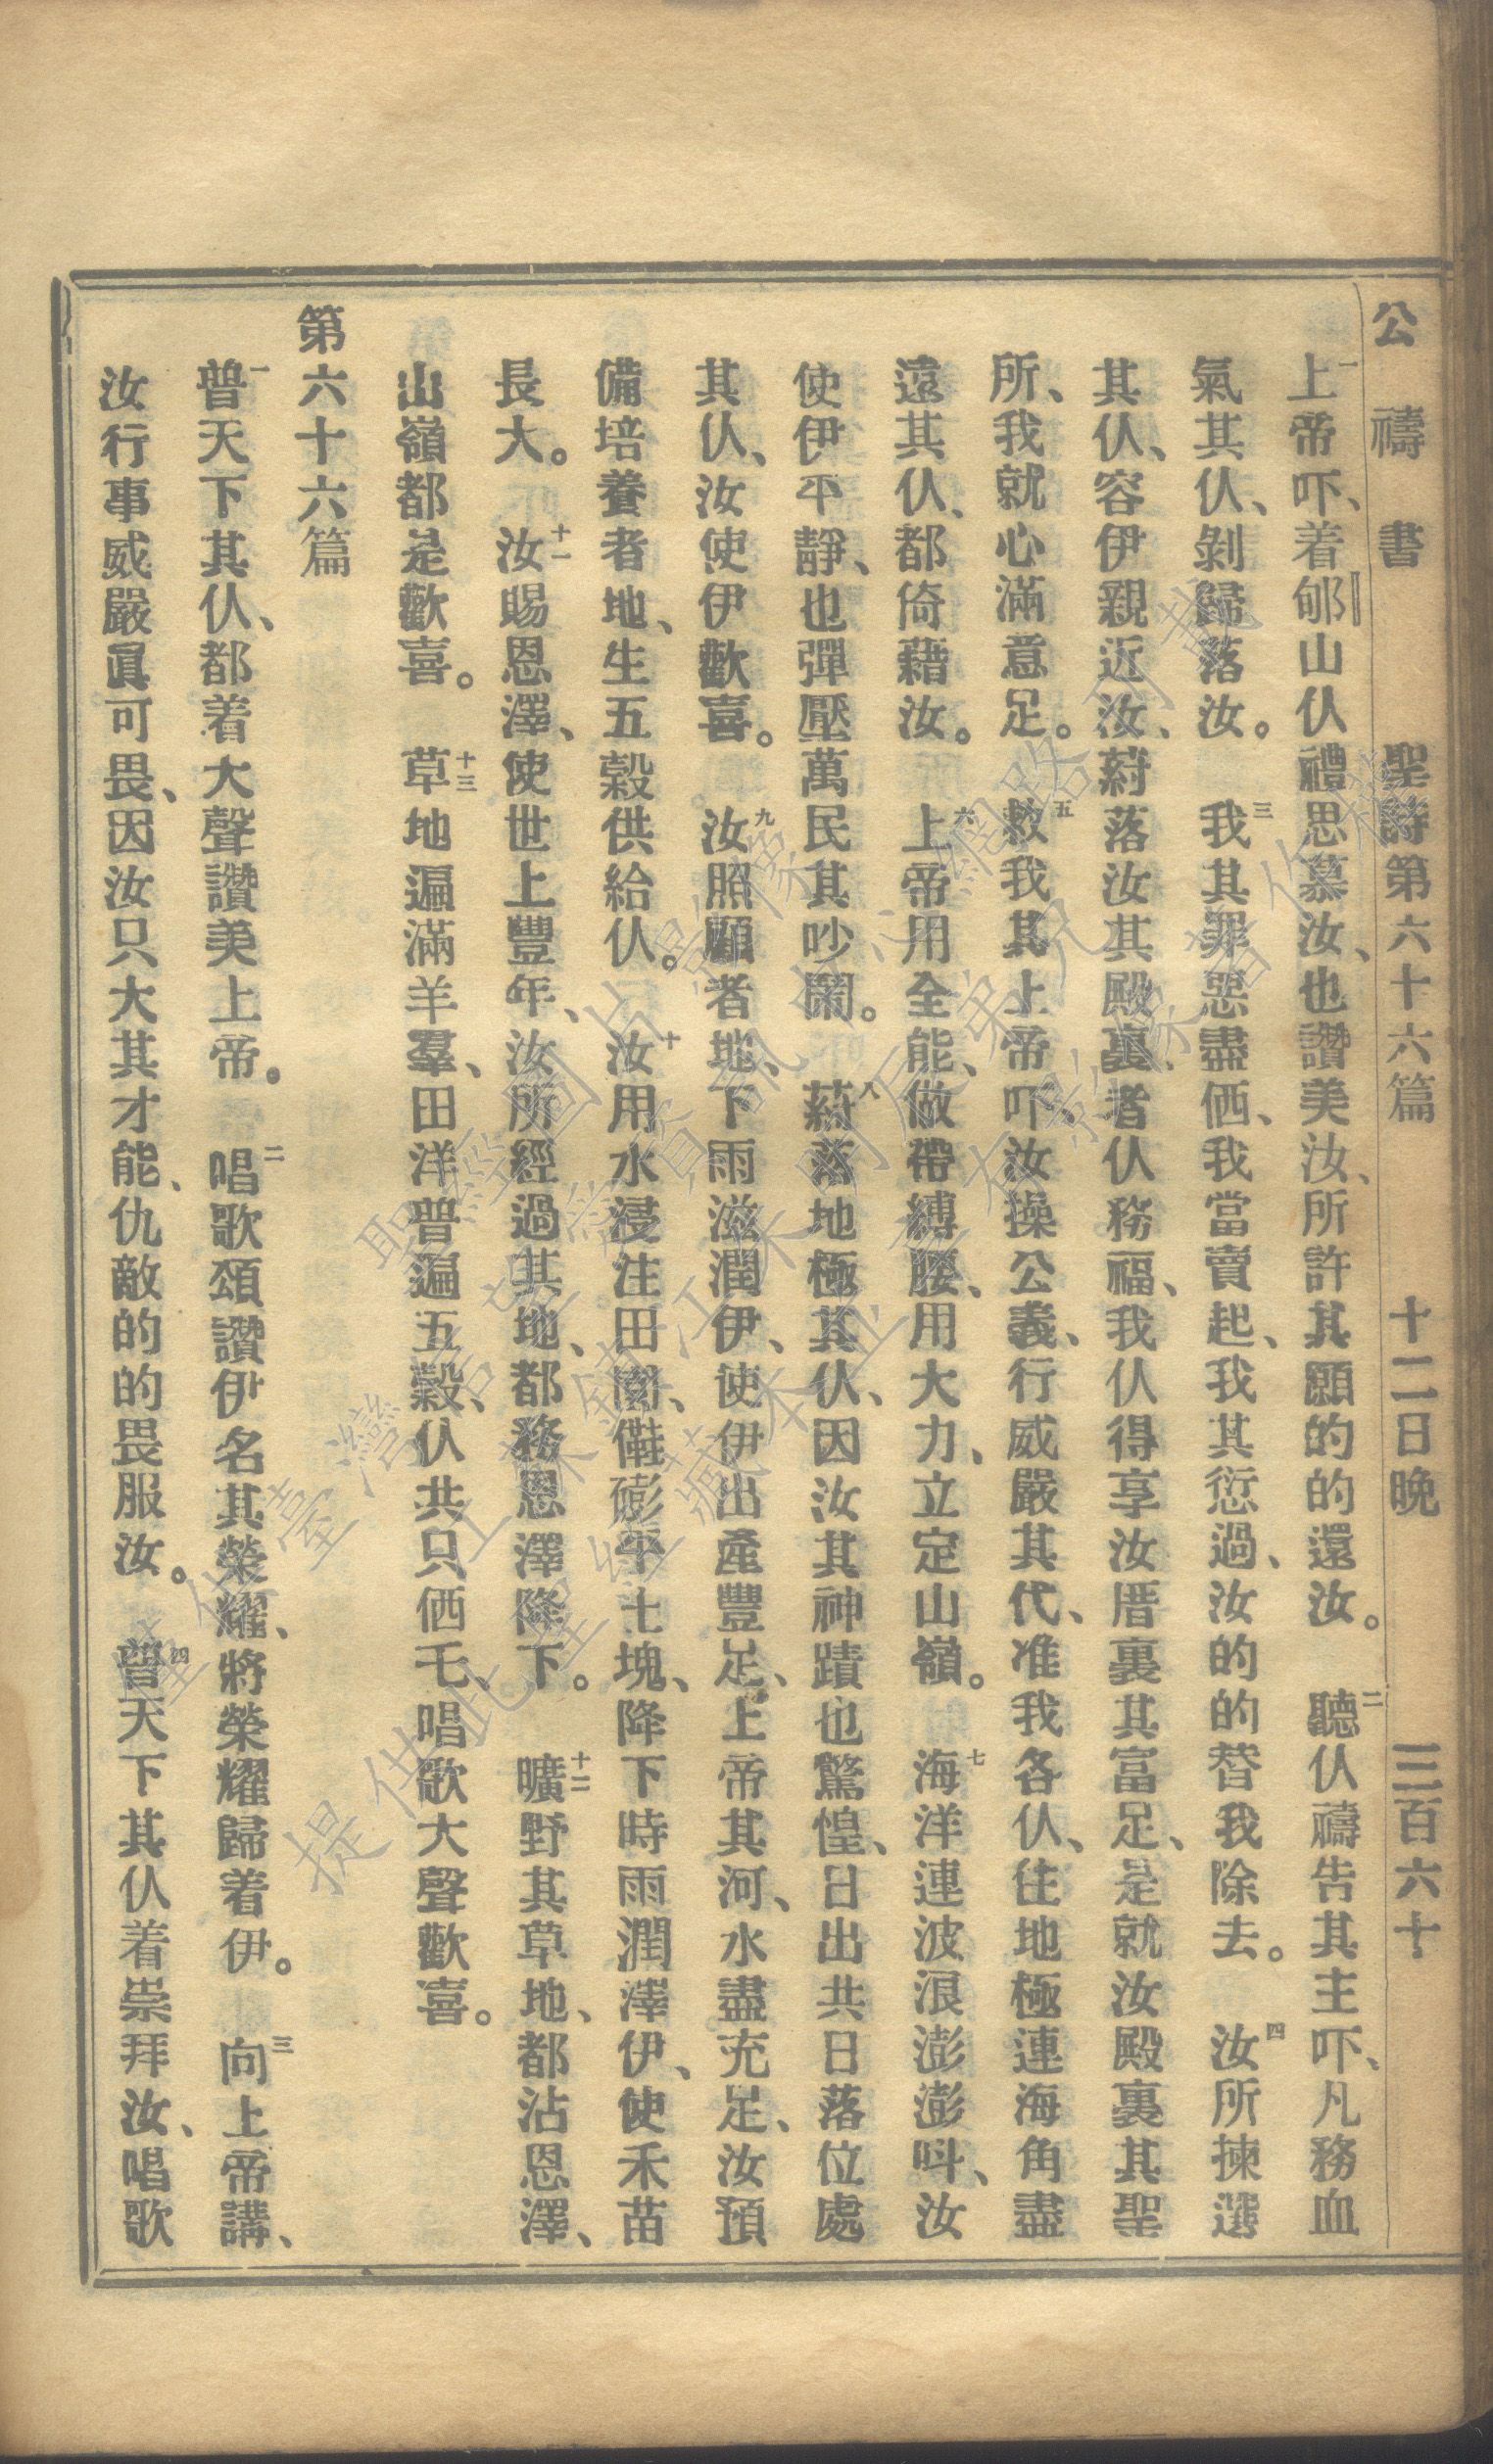 公禱書 聖詩第六十六篇 十二日晚 三百六十
一上帝吓、着郇山仈禮思慕汝、也讚美汝、所許其願的的還汝。 二聽仈禱告其主吓、凡務血
氣其仈、剝歸落汝。 三我其罪惡盡価、我當賣起、我其愆過、汝的的替我除去。 四汝所揀選
其仈、容伊親近汝、蒞落汝其殿裏、者仈務福、我仈得享汝厝裏其富足、是就汝殿裏其聖
所、我就心滿意足。 五救我其上帝吓、汝操公義、行威嚴其代、准我各仈、住地極連海角盡
遠其仈、都倚藉汝。 六上帝用全能、做帶縛腰、用大力、立定山嶺。 七海洋連波浪澎澎呌、汝
使伊平靜、也彈壓萬民其吵鬧。 八蒞落地極其仈、因汝其神蹟也驚惶、日出共日落位處
其仈、汝使伊歡喜。 九汝照顧者地、下雨滋潤伊、使伊出產豐足、上帝其河、水盡充足、汝預
備培養者地、生五穀供給仈。 十汝用水浸注田園、儺磅平土塊、降下時雨潤澤伊、使禾苗
長大。 十一汝賜恩澤、使世上豐年、汝所經過其地、都務恩澤降下。 十二曠野其草地、都沾恩澤、
山嶺都是歡喜。 十三草地遍滿羊羣、田洋普遍五穀、仈共只価乇、唱歌大聲歡喜。
第六十六篇
一普天下其仈、都着大聲讚美上帝。 二唱歌頌讚伊名其榮耀、將榮耀歸着伊。 三向上帝講、
汝行事威嚴眞可畏、因汝只大其才能、仇敵的的畏服汝。 四普天下其仈着崇拜汝、唱歌